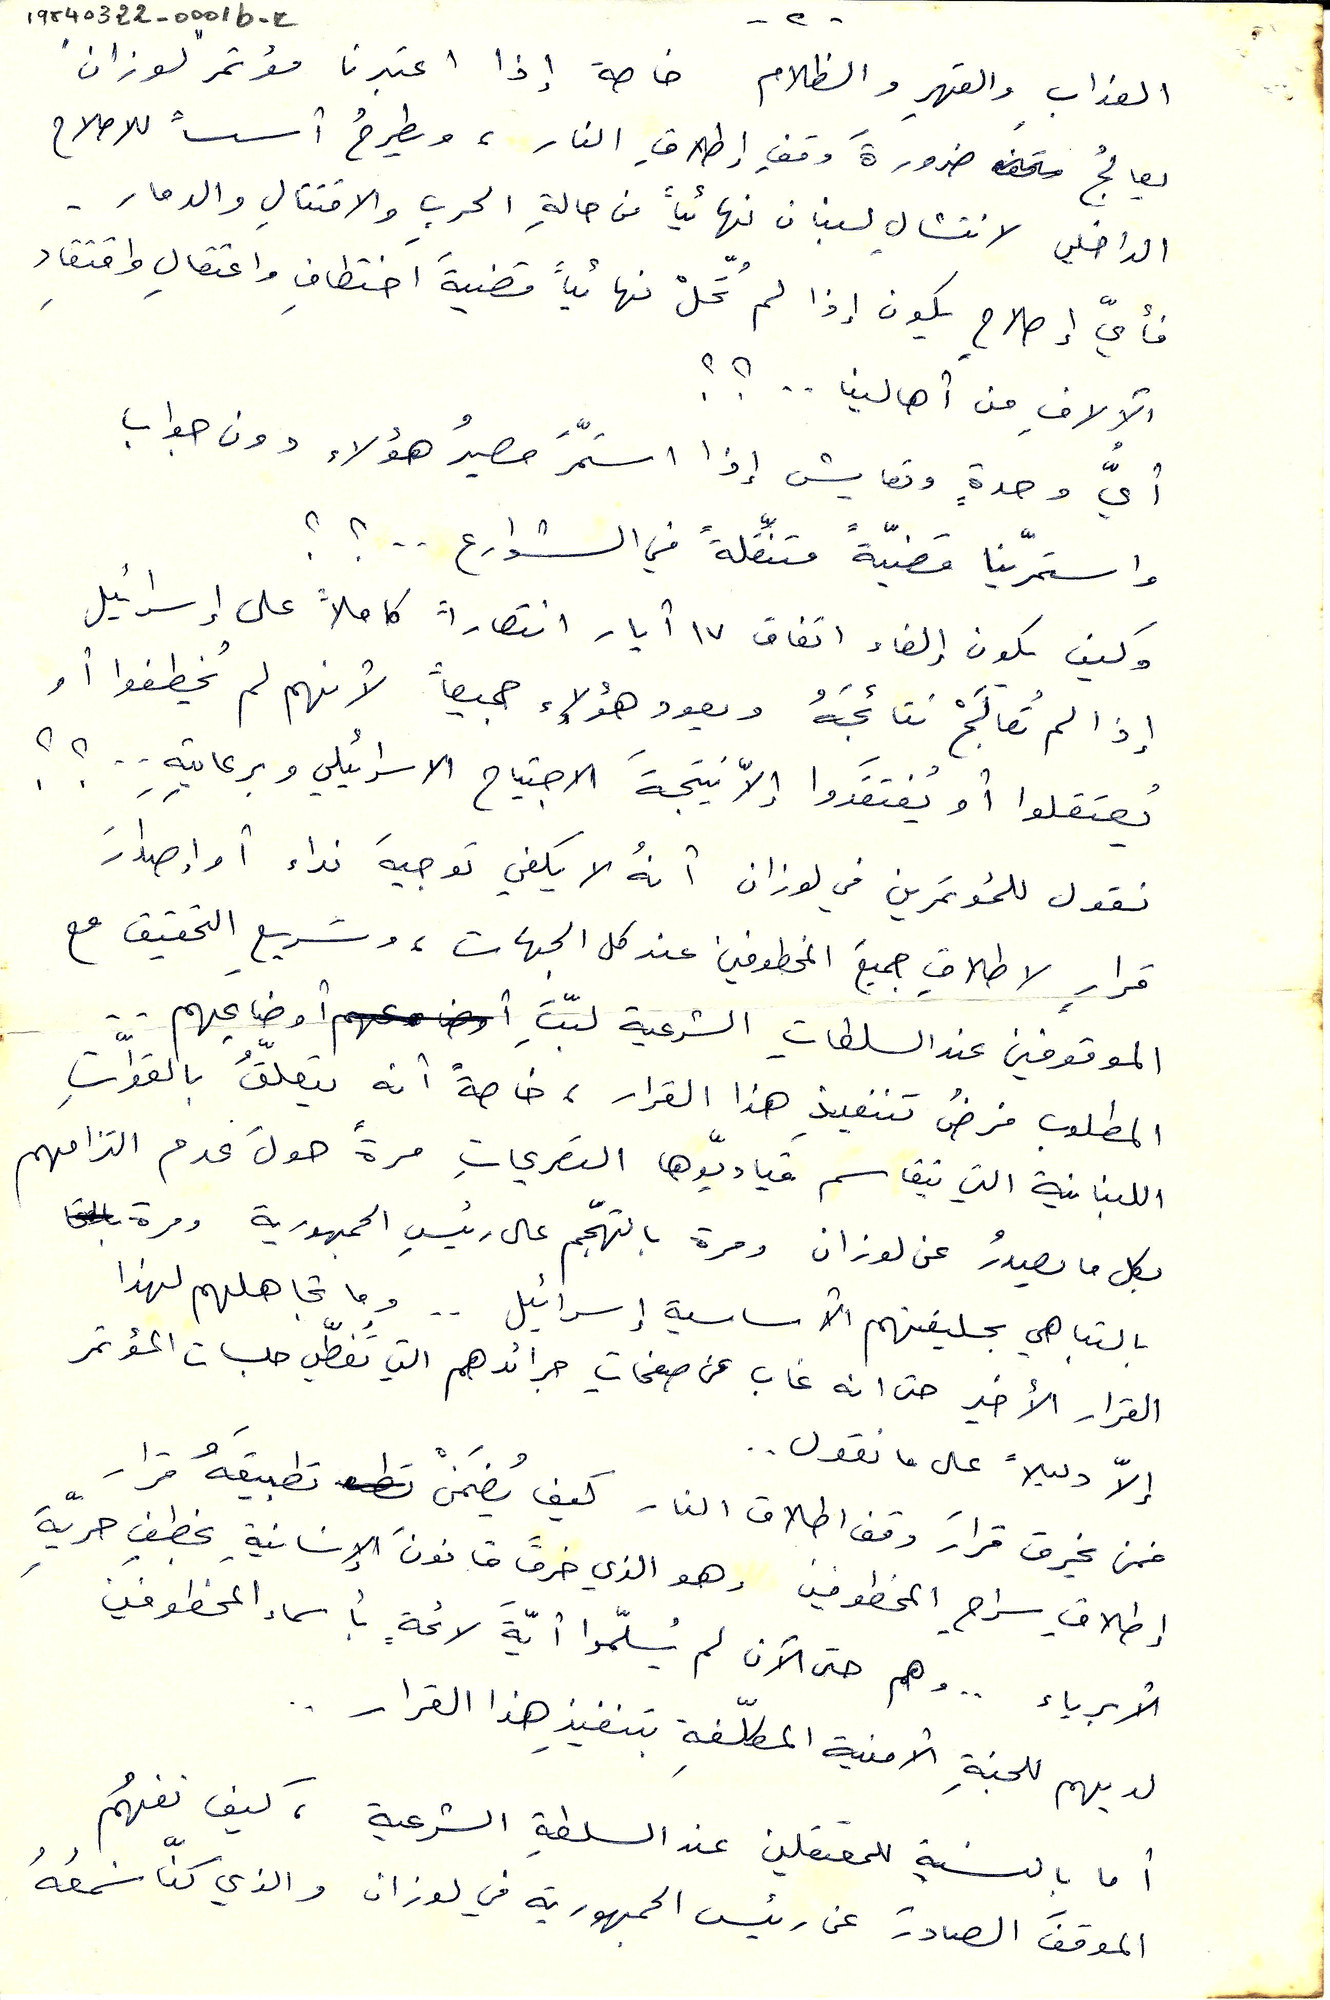 19840322-0001b-r
- ٢ -
العذاب والقهرِ والظلام خاصة إذا اعتبرنا مؤتمر "لوزان"
يعالجُ ضرورةَ وقفِ إطلاقِ النار ، ويطرحُ أسساً للاصلاح
الداخلي لانتشالِ لبنان نهائياً من حالةِ الحربِ والاقتتالِ والدمار -
فأيّ إصلاحٍ يكون إذا لم تُحَلْ نهائياً قضيةَ اختطافِ واعتقالِ وافتقادِ
الآلافِ من أهالينا .. ؟ ؟
أيُّ وحدةٍ وتعايش إذا استمَّرَ مصيرُ هؤلاء دون جواب
واستمرّينا قضيّةً متنقّلةً في الشوارع .. ؟ ؟
وكيف يكون إلغاء اتفاق ١٧ أيار انتصاراً كاملاً على إسرائيل
إذا لم تُعالَجْ نتائجَهُ ويعود هؤلاء جميعاً لأنهم لم يُخطفوا أو
يُعتقلوا أو يُفتقَدوا إلاّ نتيجةَ الاجتياح الاسرائيلي وبرعايتِهِ .. ؟ ؟
نقول للمؤتمَرين في لوزان أنهُ لا يكفي توجيهَ نداء أو إصدارَ
قرارٍ لاطلاقِ جميعَ المخطوفين عند كل الجهات ، وتسريعِ التحقيق مع
الموقوفين عند السلطاتِ الشرعية لبَتِّ أوضاعهم أوضاعِهم ..
المطلوب فرضُ تنفيذِ هذا القرار ، خاصةً أنه يتعلّقُ بالقوّاتِ
اللبنانية التي يتقاسم قياديّوها التصريحاتِ مرةً حولَ عدم التزامهم
بكل ما يصدرُ عن لوزان ومرة بالتهجّم على رئيسِ الجمهورية ومرة
بالتباهي بحليفتهم الأساسية إسرائيل .. وما تجاهلهم لهذا
القرار الأخير حتى انه غاب عن صفحاتِ جرائدهم التي تُغطّي جلسات المؤتمر
إلاّ دليلاً على ما نقول ..
فمن يخرق قرارَ وقف اطلاق النار كيف يُضمَنْ تطبيقَهُ قرار
إطلاقِ سراحِ المخطوفين وهو الذي خرقَ قانونَ الإنسانيةِ بخطفِ حريّةَِ
الأبرياء .. وهم حتى الآن لم يُسلّموا أيّةَ لائحةٍ بأسماء المخطوفين
لديهم للجنةِ الأمنية المكلّفةِ بتنفيذِ هذا القرار ..
أما بالنسبةِ للمعتقلين عند السلطةِ الشرعية ، كيف نفهمُ
الموقفَ الصادرَ عن رئيس الجمهورية في لوزان والذي كنّا نسمعُهُ